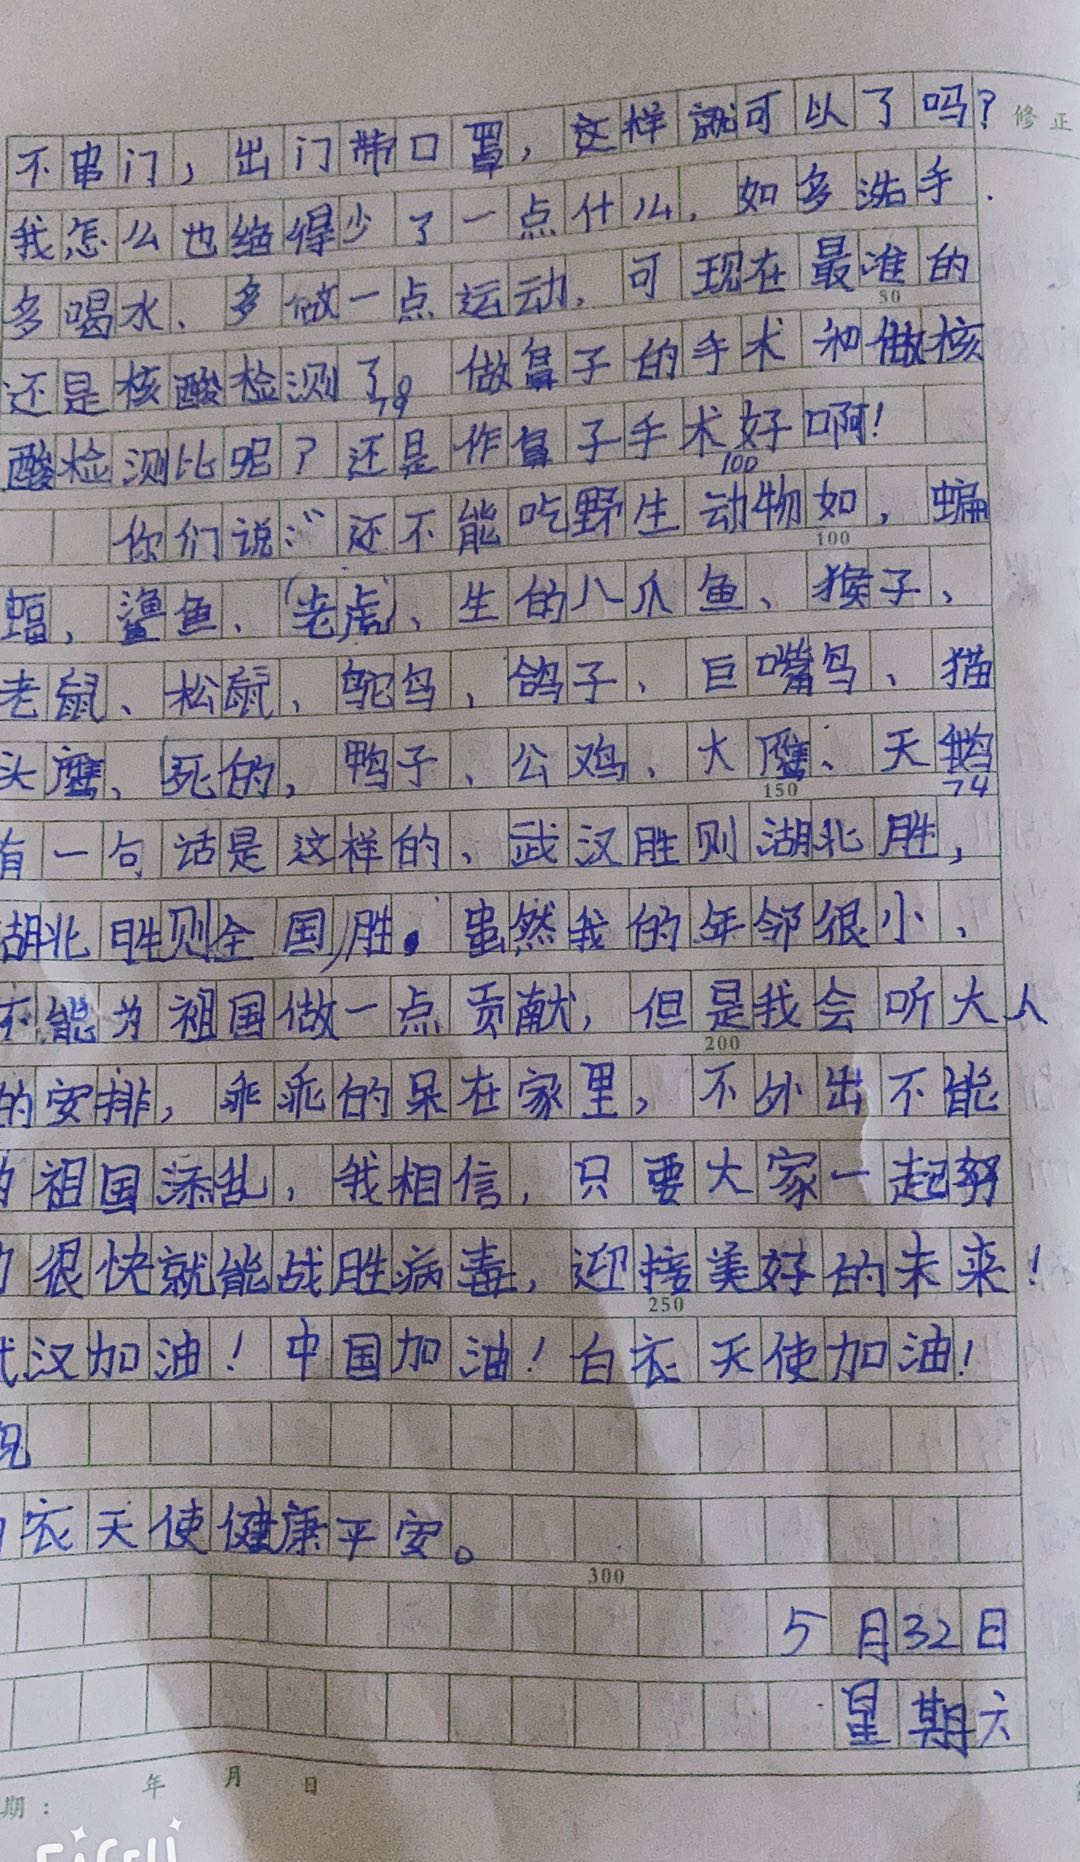 不串门，出门带口罩，这样就可以了吗？
修正
我怎么也绝得少了一点什么，如多洗手．
多喝水、多做一点运动，可现在最准的
50
还是核酸检测了。做鼻子的手术和做核
79
酸检测比呢？还是作鼻子手术好啊！
100
你们说：“还不能吃野生动物如，蝙
100
蝠，鲨鱼、（老虎）、生的八爪鱼、猴子、
老鼠、松鼠，鸵鸟，鸽子、巨嘴鸟、猫
头鹰、死的，鸭子、公鸡、大鹰、天鹅
150
74
有一句话是这样的、武汉胜则湖北胜，
湖北胜则全国胜。虽然我的年邻很小、
不能为祖国做一点贡献，但是我会听大人
200
的安排，乖乖的呆在家里，不外出不能
祖国添乱，我相信，只要大家一起努
很快就能战胜病毒，迎接美好的未来！
250
武汉加油！中国加油！白衣天使加油！
衣天使健康平安。
300
5月32日
星期六
年 月 日
期：